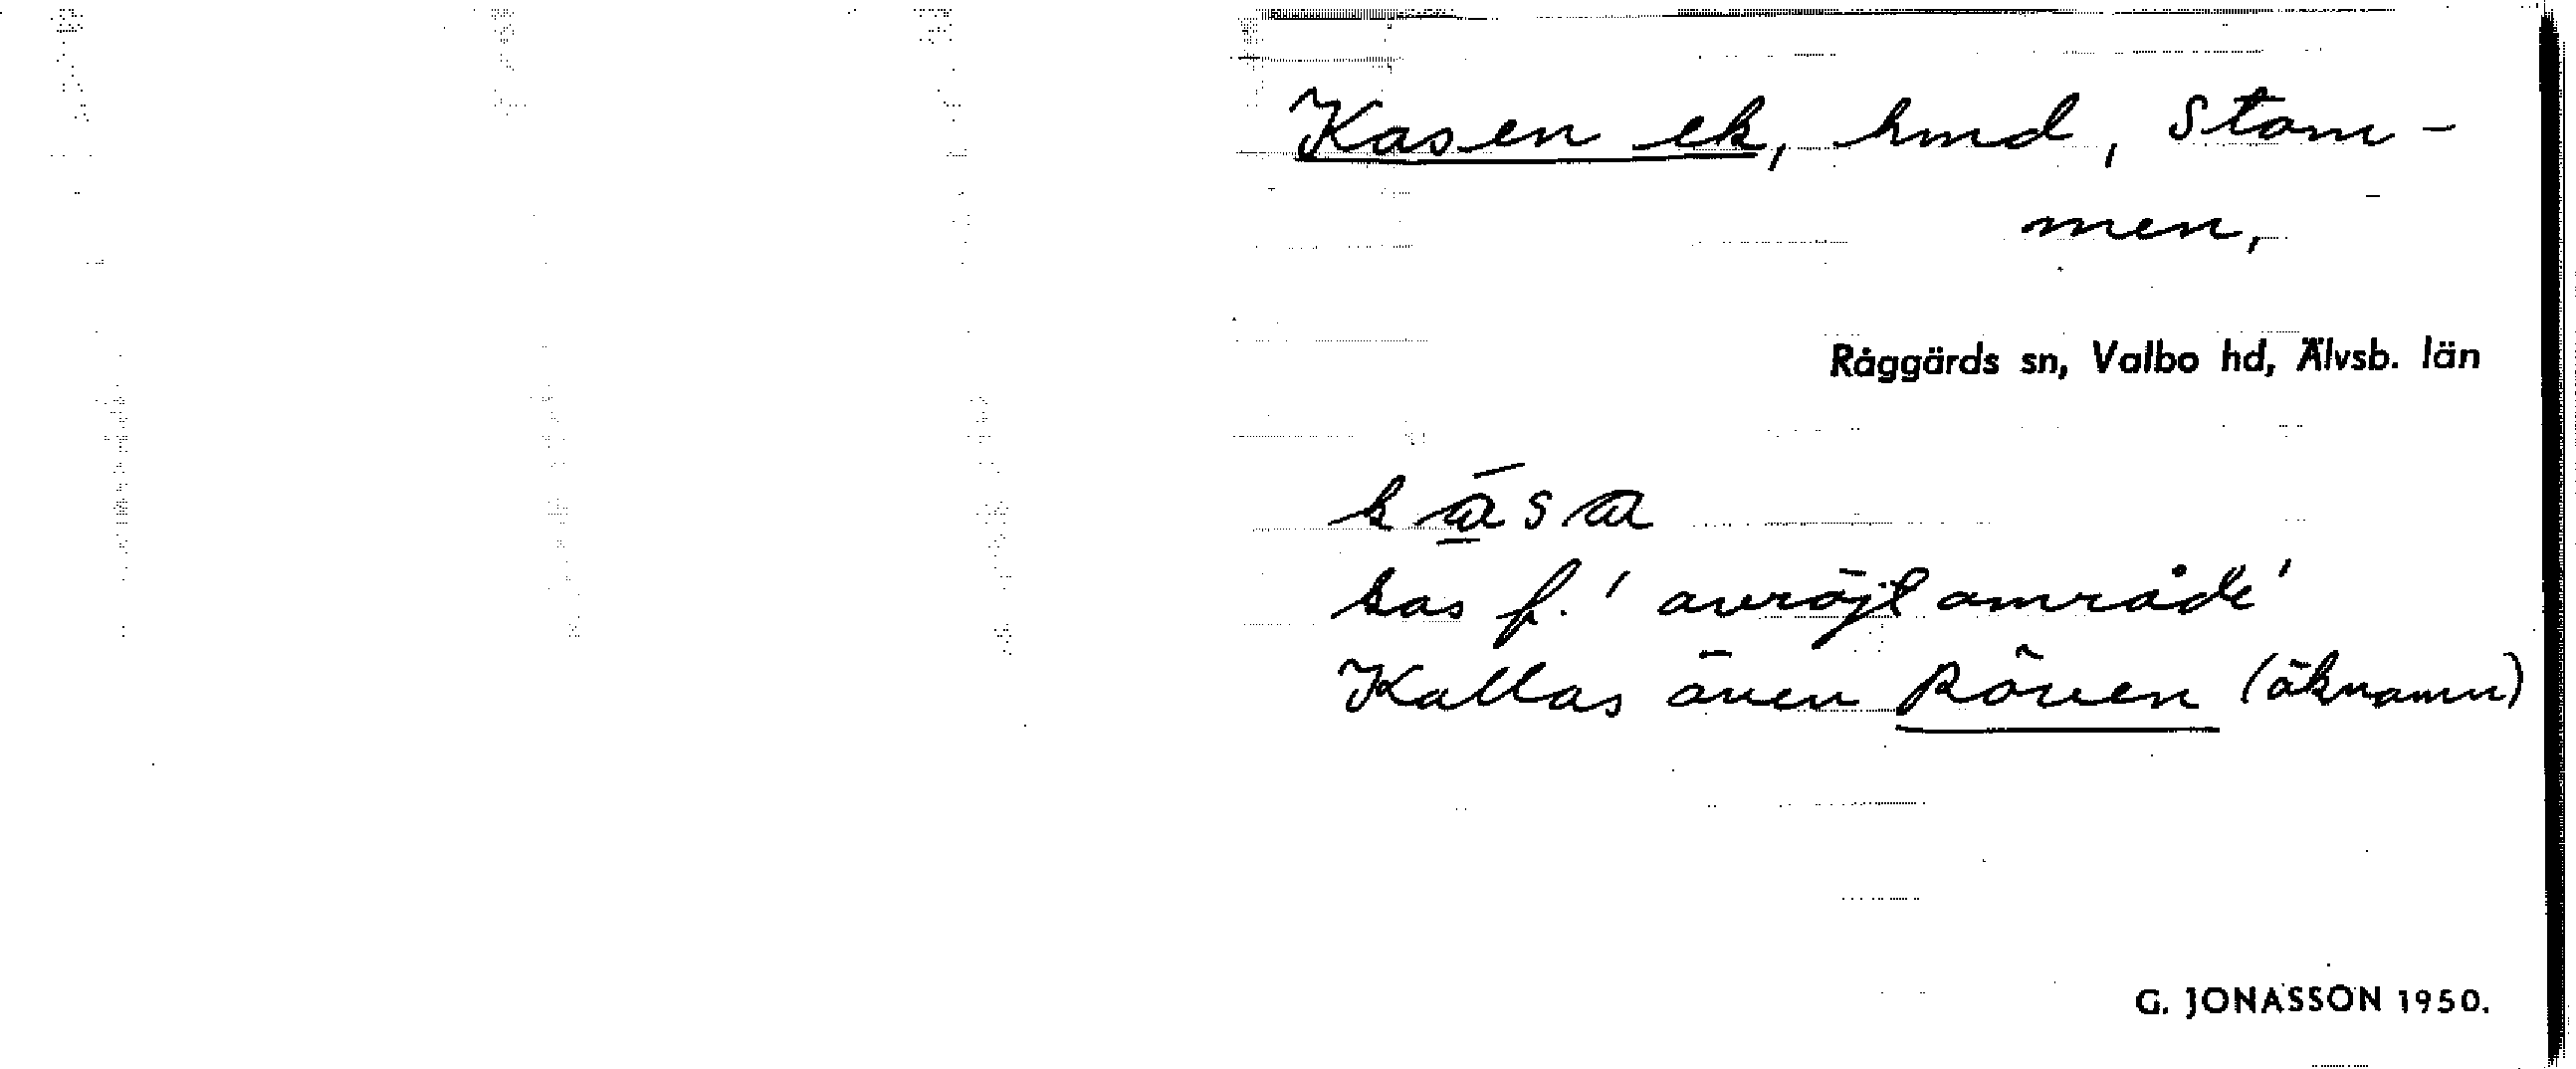 Kasen ek, hmd, Stom-
men,
Råggärds sn, Valbo hd, Älvsb. län
ka̱̍sa
kas f. 'avröjt område'
Kallas även Röven (öknamn)
G. JONASSON 1950.